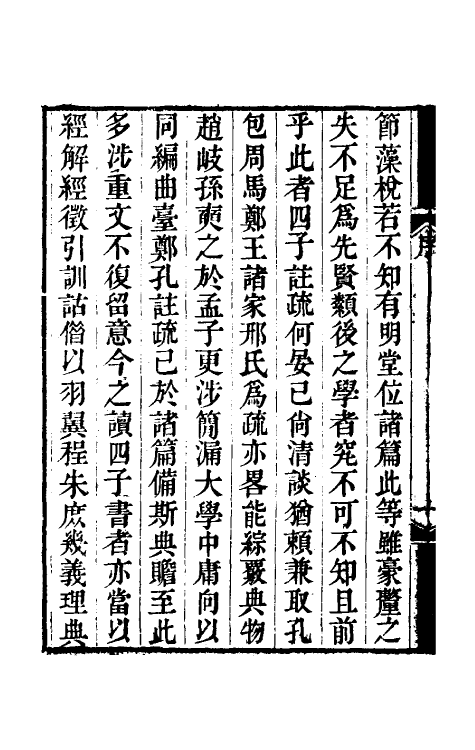 節藻梲若不知有明堂位諸篇此等雖豪釐之
失不足爲先賢纇後之學者究不可不知且前
乎此者四子註疏何晏已尙清談猶頼兼取孔
包周馬鄭王諸家邢氏爲疏亦畧能綜覈典物
趙岐孫奭之於孟子更涉簡漏大學中庸向以
同編曲臺鄭孔註疏已於諸篇備斯典贍至此
多涉重文不復留意今之讀四子書者亦當以
經解經徵引訓詁偕以羽翼程朱庶幾義理典
序